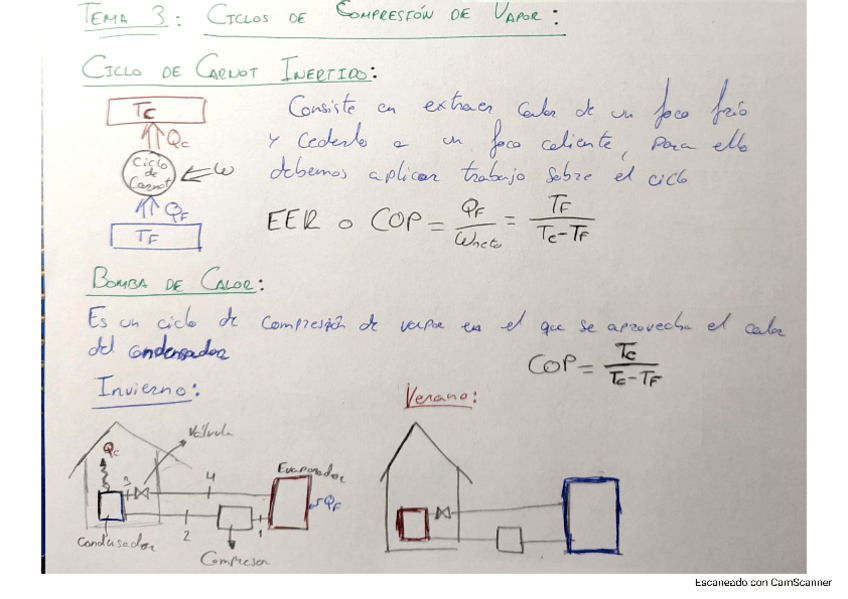 TEMA 3: CICLOS DE COMPRESIÓN DE VAPOR:
CICLO DE CARNOT INERTIDO:
Tc
Qc
Ciclo de Carnot
W
QF
TF
Consiste en extraer calor de un foco frío
y cederlo a un foco caliente, para ello
debemos aplicar trabajo sobre el ciclo
EER o COP = QF / Wneto = TF / Tc-TF
BOMBA DE CALOR:
Es un ciclo de compresión de vapor en el que se aprovecha el calor
del condensador
COP = Tc / Tc-TF
Invierno:
Verano:
Válvula
Qc
3
4
Evaporador
QF
Condensador
2
1
Compresor
Escaneado con CamScanner